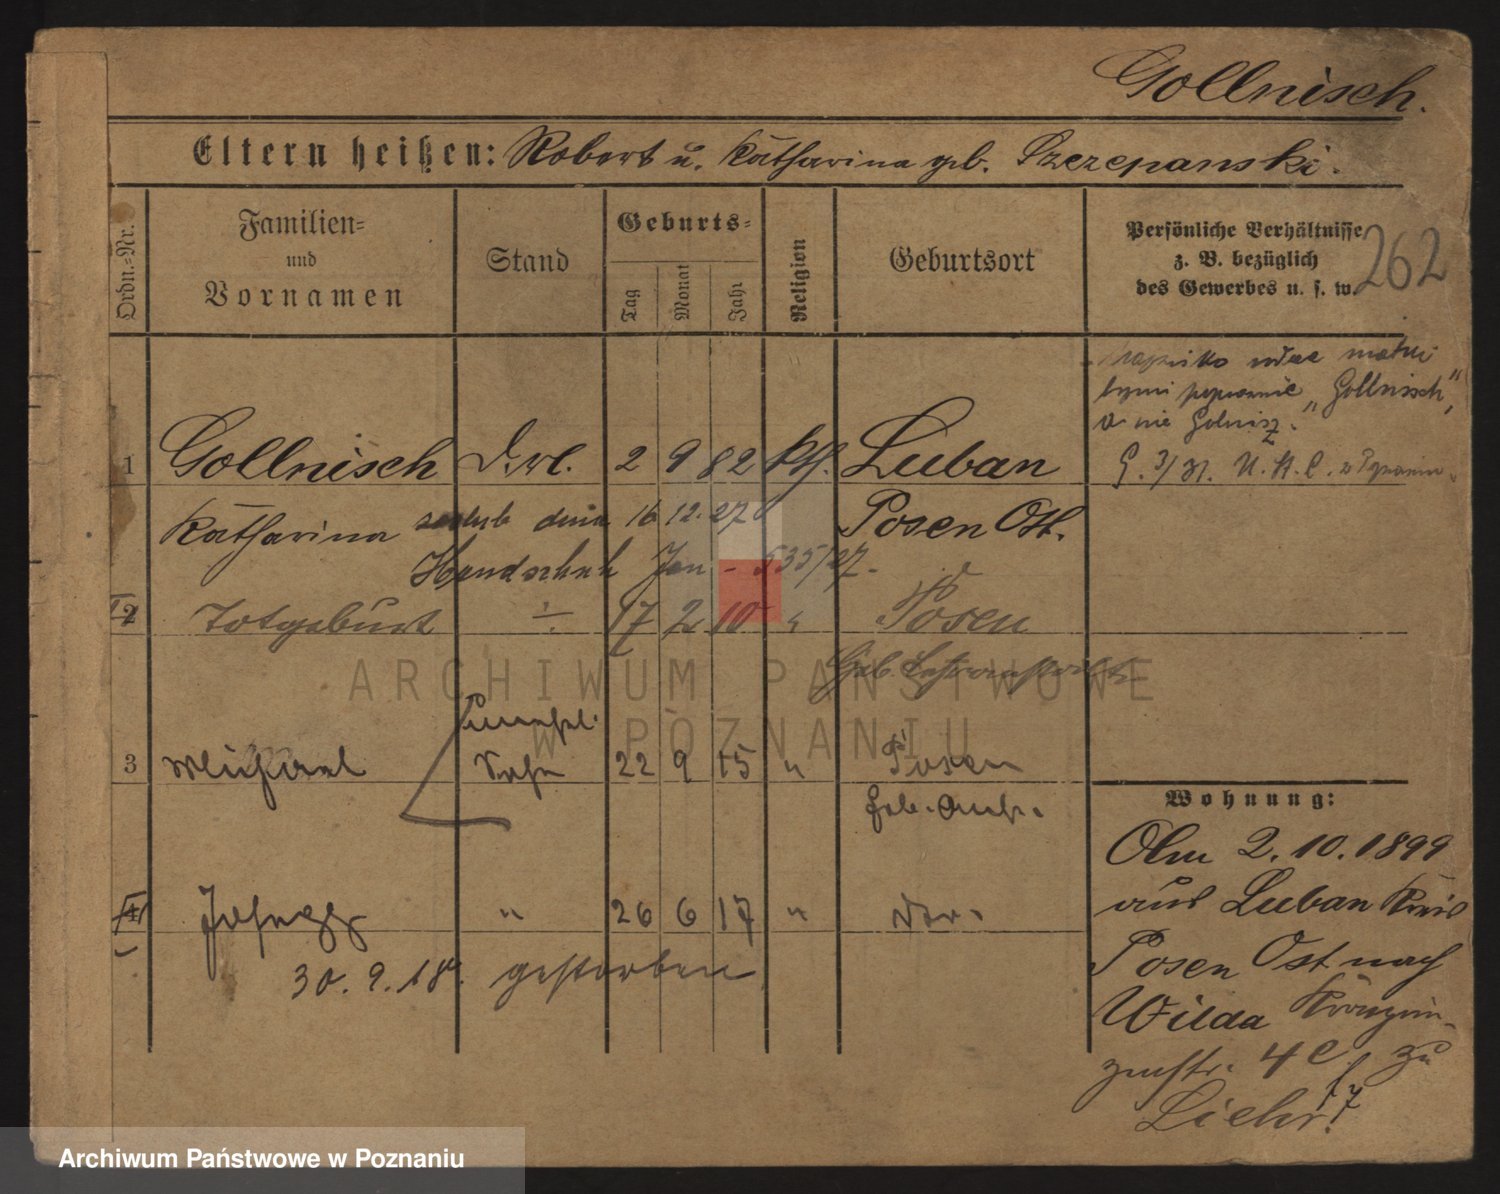 Gollnisch.
Eltern heißen: Robert u. Katharina geb. Szczepanski.
Ordn.=Nr.
Familien=
und
Vornamen
Stand
Geburts=
Tag
Monat
Jahr
Religion
Geburtsort
Persönliche Verhältnisse
z. B. bezüglich
des Gewerbes u. s. w.
262
Nazwisko matki
"Gollnisch",
a nie Golnisz.
1 Gollnisch 2 9 82 kth. Luban
Katharina dnia 16 12. 27 Posen Ost.
Handschuh Jan - 535/27.
2 Totgeburt ÷ 17 2 10 " Posen
3 Michael unehel. Sohn 22 9 15 " Posen
4 " 26 6 17 "
30. 9. 18. gestorben
Wohnung:
Am 2. 10. 1899
aus Luban Kreis
Posen Ost nach
Wilda Kronprin-
zenstr. 4 zu
Liehr.
ARCHIWUM PAŃSTWOWE
W POZNANIU
Archiwum Państwowe w Poznaniu